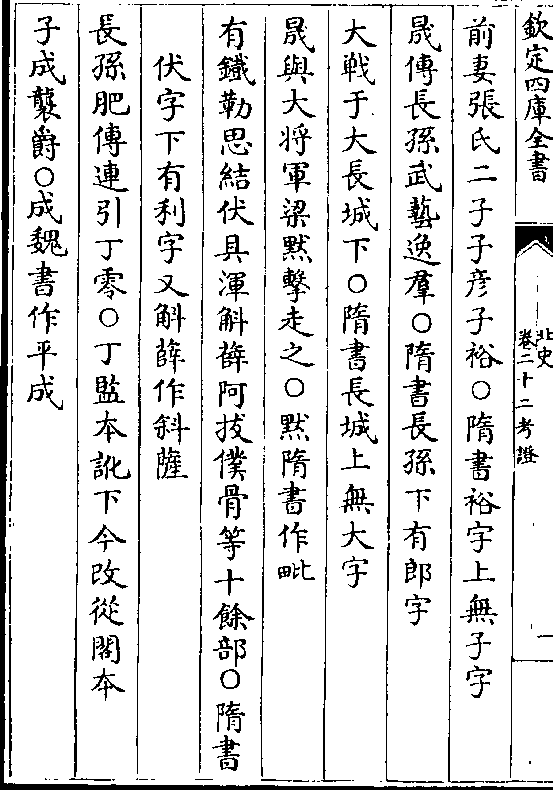 欽定四庫全書
北史
卷二十二考證
一
前妻張氏二子子彦子裕○隋書裕字上無子字
晟傳長孫武藝逸羣○隋書長孫下有郎字
大戰于大長城下○隋書長城上無大字
晟與大将軍梁黙擊走之○黙隋書作毗
有鐡勒思結伏具渾斛薛阿拔僕骨等十餘部○隋書
伏字下有利字又斛薛作斜薩
長孫肥傳連引丁零○丁監本訛下今改從閣本
子成襲爵○成魏書作平成